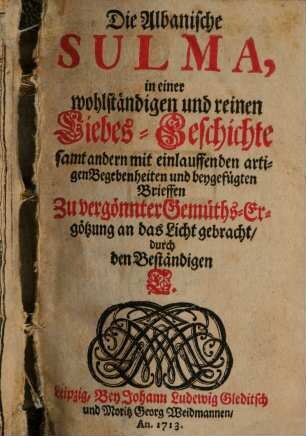 Die Albanische
SULMA,
in einer
wohlständigen und reinen
Liebes-Geschichte
samt andern mit einlauffenden arti-
gen Begebenheiten und beygefügten
Brieffen
Zu vergönnter Gemüths-Er-
götzung an das Licht gebracht/
durch
den Beständigen
Leipzig, Bey Johann Ludewig Gleditsch
und Moritz Georg Weidmannen/
An. 1713.